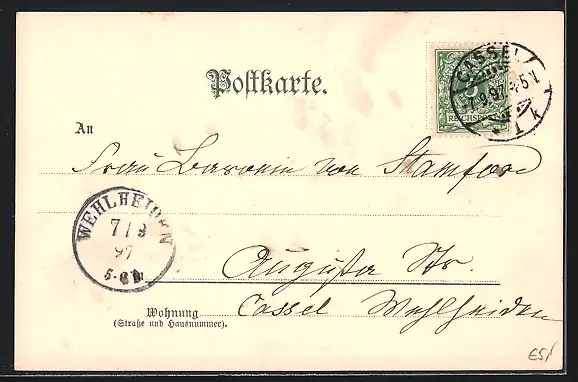 Postkarte.
CASSEL
7.9.97.4-5V.
1 k
5
REICHSPOST
An
Frau Baronin von Stamford
WEHLHEIDEN
7/9
97
5-6N
Augusta Str.
Cassel Wehlheiden
Wohnung
(Straße und Hausnummer).
€5/